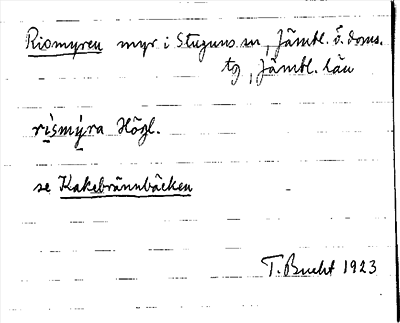 Rismyren myr i Stuguns sn, Jämtl. ö. doms.
tg, Jämtl. län
rismyra Högl.
se Kakebrännbäcken
T. Bucht 1923